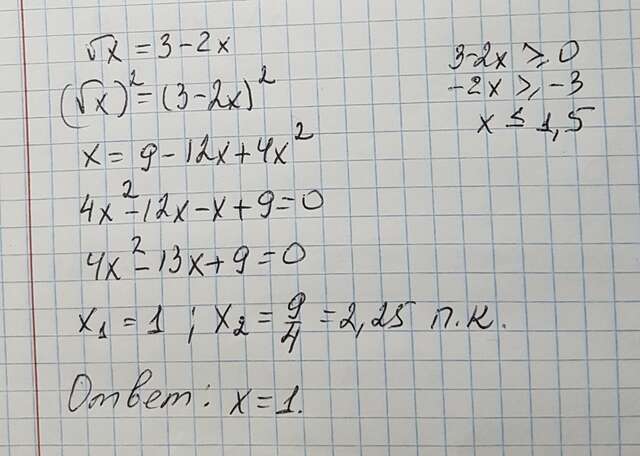 √x = 3 - 2x
(√x)² = (3 - 2x)²
x = 9 - 12x + 4x²
4x² - 12x - x + 9 = 0
4x² - 13x + 9 = 0
x₁ = 1 ; x₂ = 9/4 = 2,25 п.к.
Ответ: x = 1.
3 - 2x ≥ 0
-2x ≥ -3
x ≤ 1,5